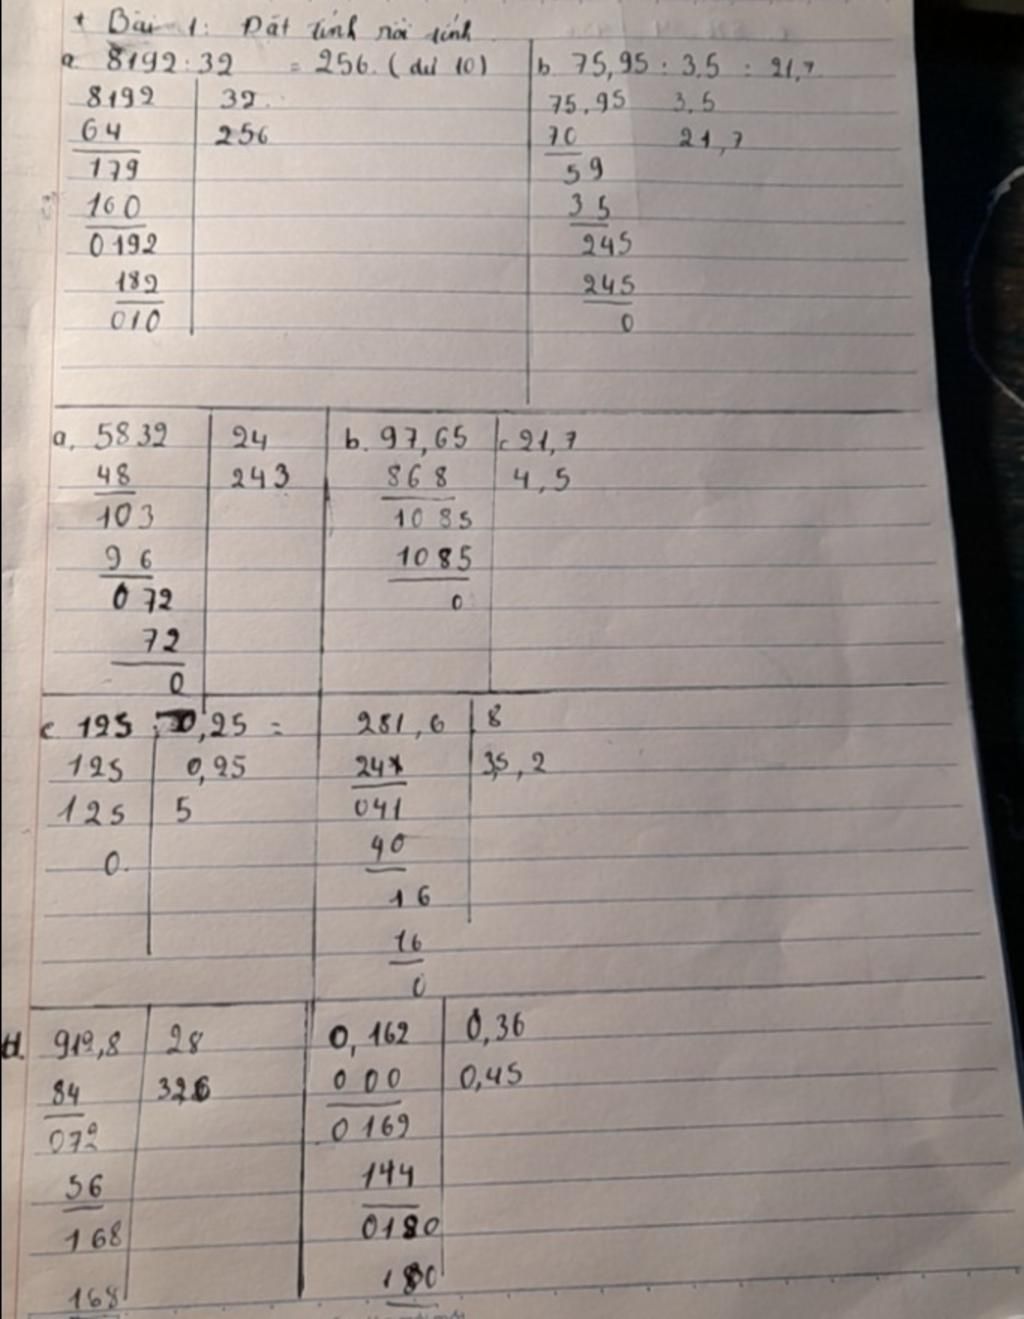 + Bài 1: Đặt tính rồi tính
a. 8192:32 = 256. (dư 10)
8192 32
64 256
179
160
0192
182
010
b. 75,95 : 3,5 : 21,7
75,95 3,5
70 21,7
59
35
245
245
0
a. 5832 24
48 243
103
96
072
72
0
b. 97,65 21,7
868 4,5
1085
1085
0
c. 125 : 0,25 =
125 0,25
125 5
0.
281,6 8
24 35,2
041
40
16
16
0
d. 912,8 28
84 32,6
072
56
168
168
0,162 0,36
000 0,45
0162
144
0180
180